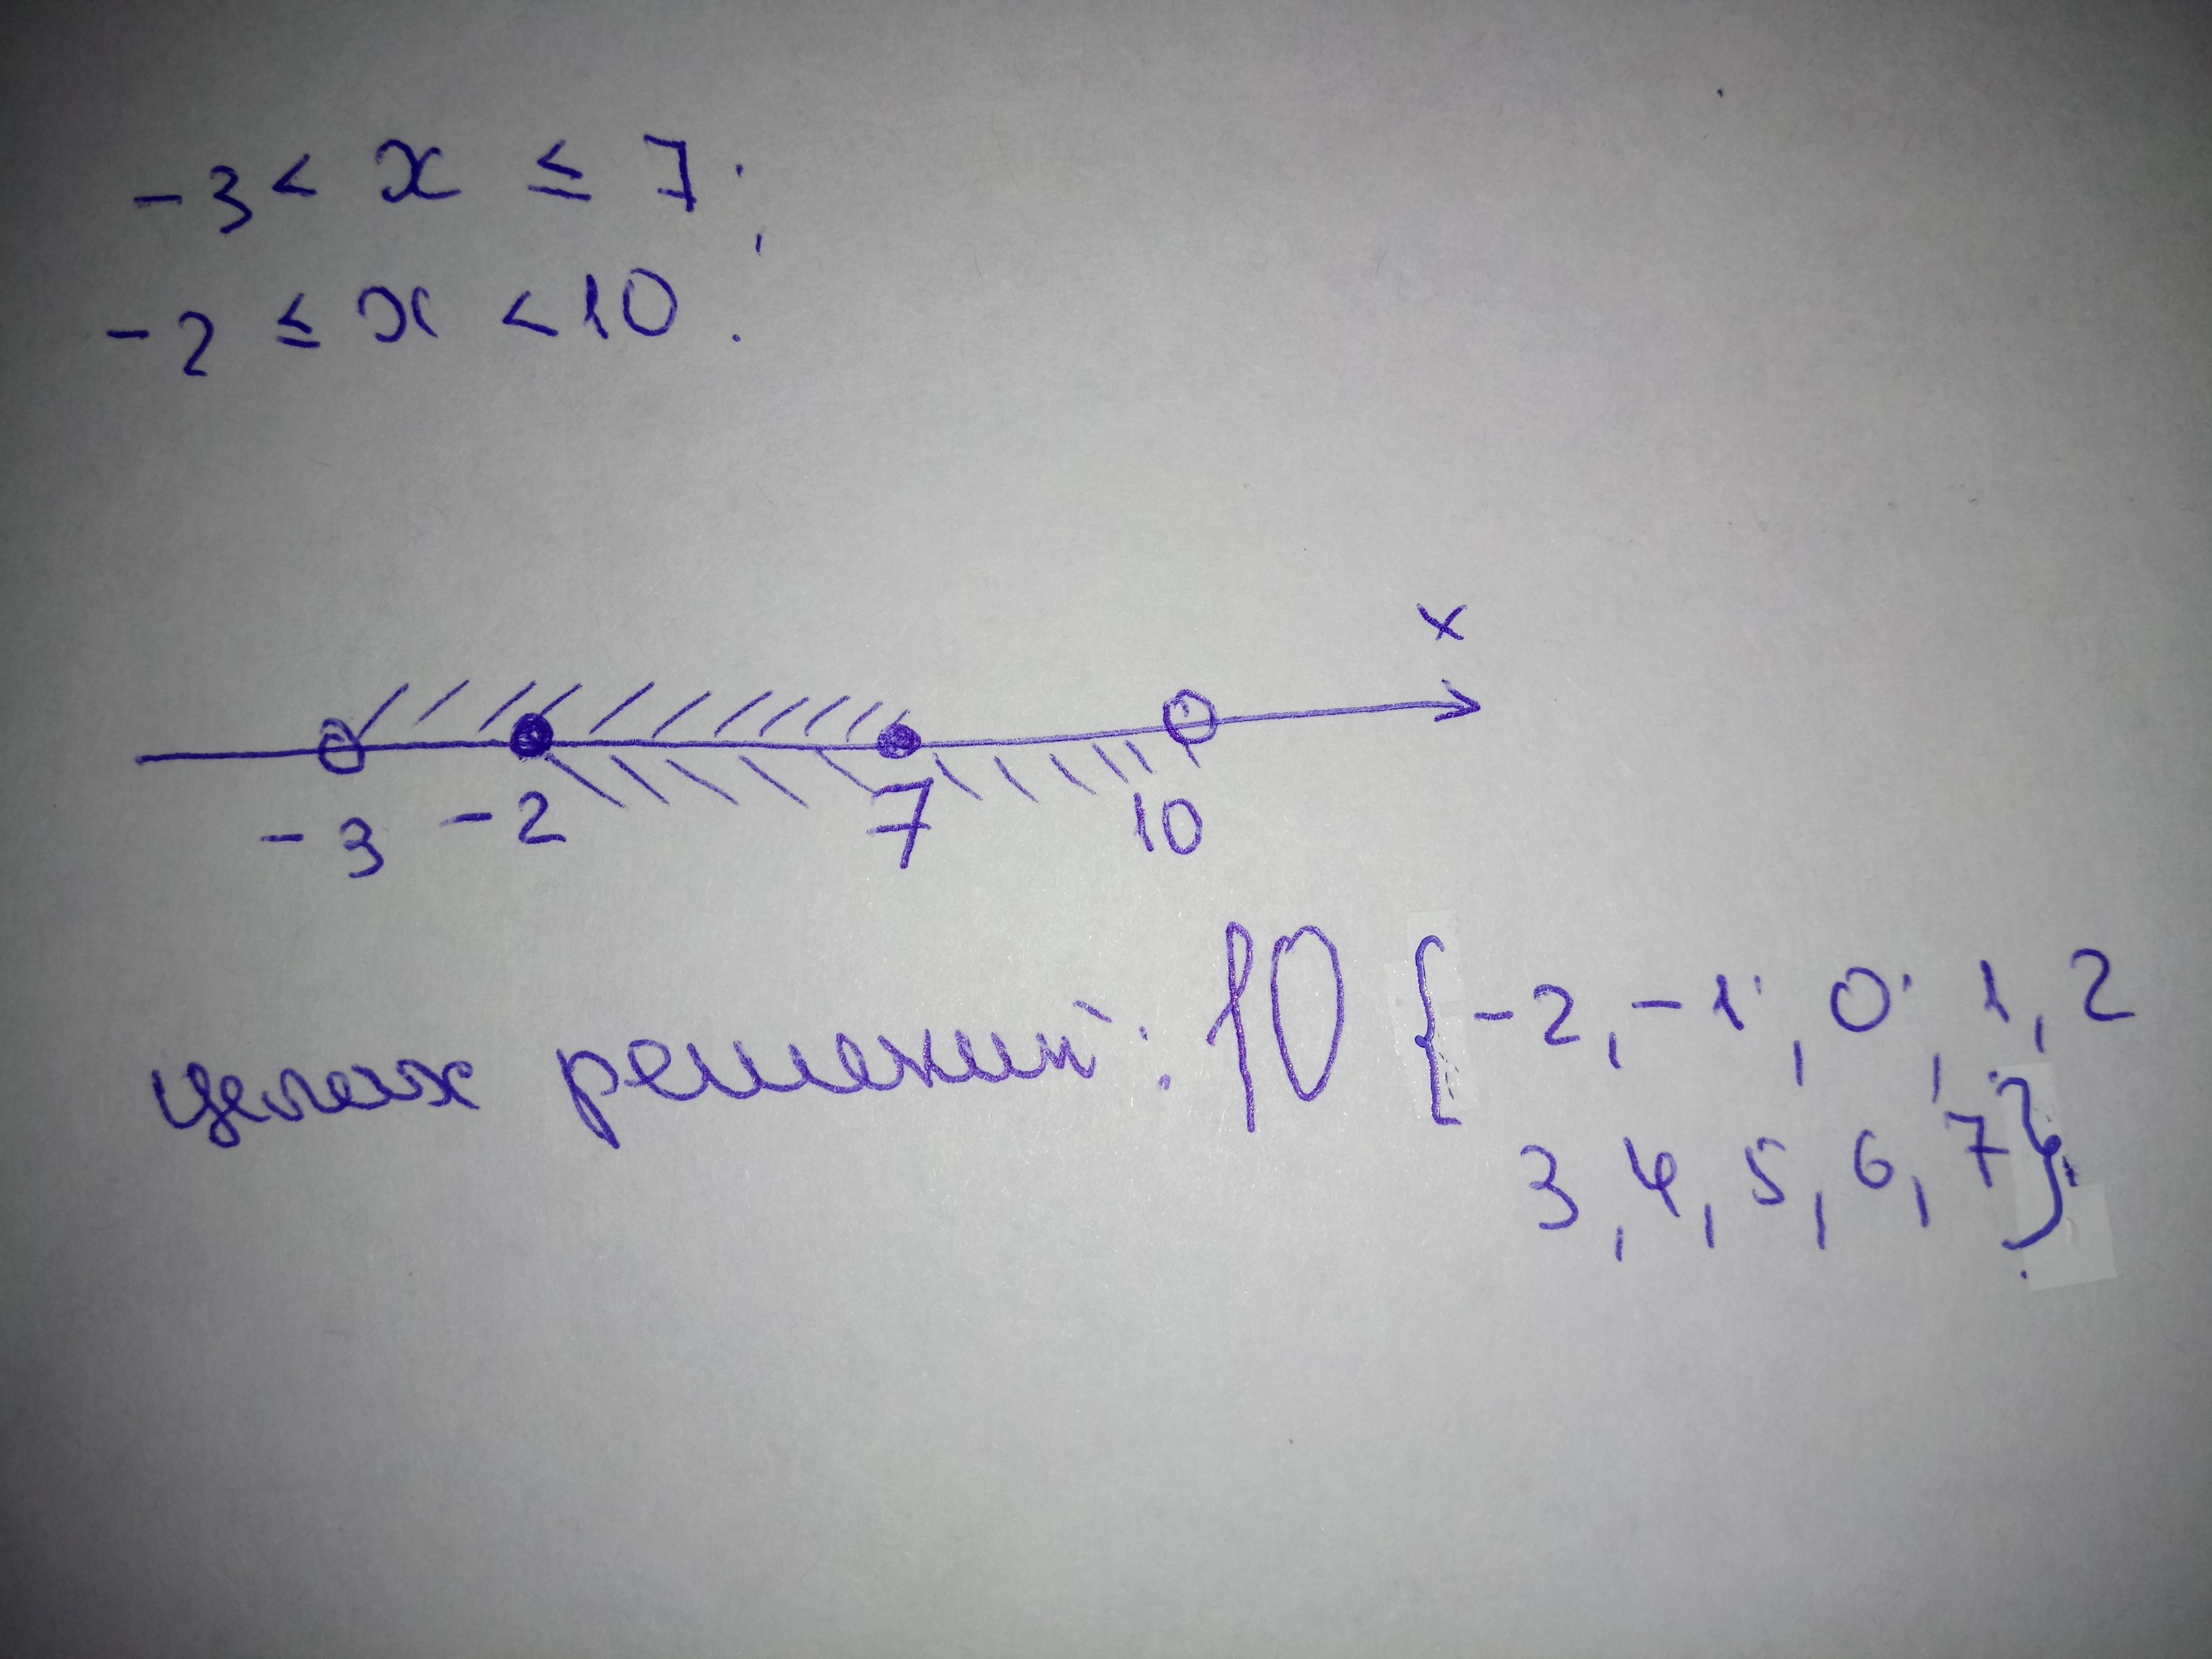 -3 < x ≤ 7;
-2 ≤ x < 10.
x
-3 -2 7 10
целых решений: 10 {-2, -1, 0, 1, 2
3, 4, 5, 6, 7}.